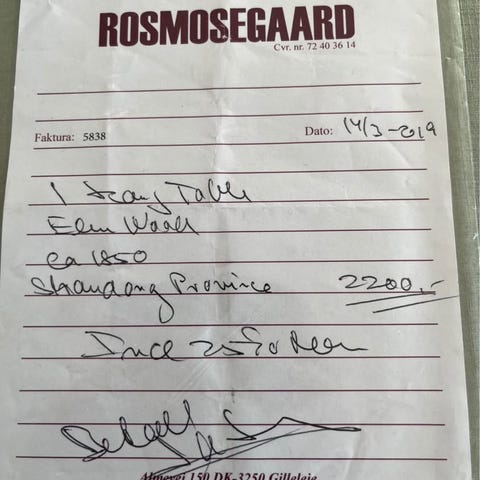 ROSMOSEGAARD
Cvr. nr. 72 40 36 14
Faktura: 5838 Dato: 14/3-2019
1 Table
Elm Wood
ca 1850
Shandong Province 2200,-
25%
Almevej 150 DK-3250 Gilleleje